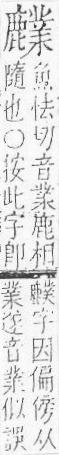 魚怯切音業鹿相
隨也○按此字卽
字因偏傍从
業遂音業似誤